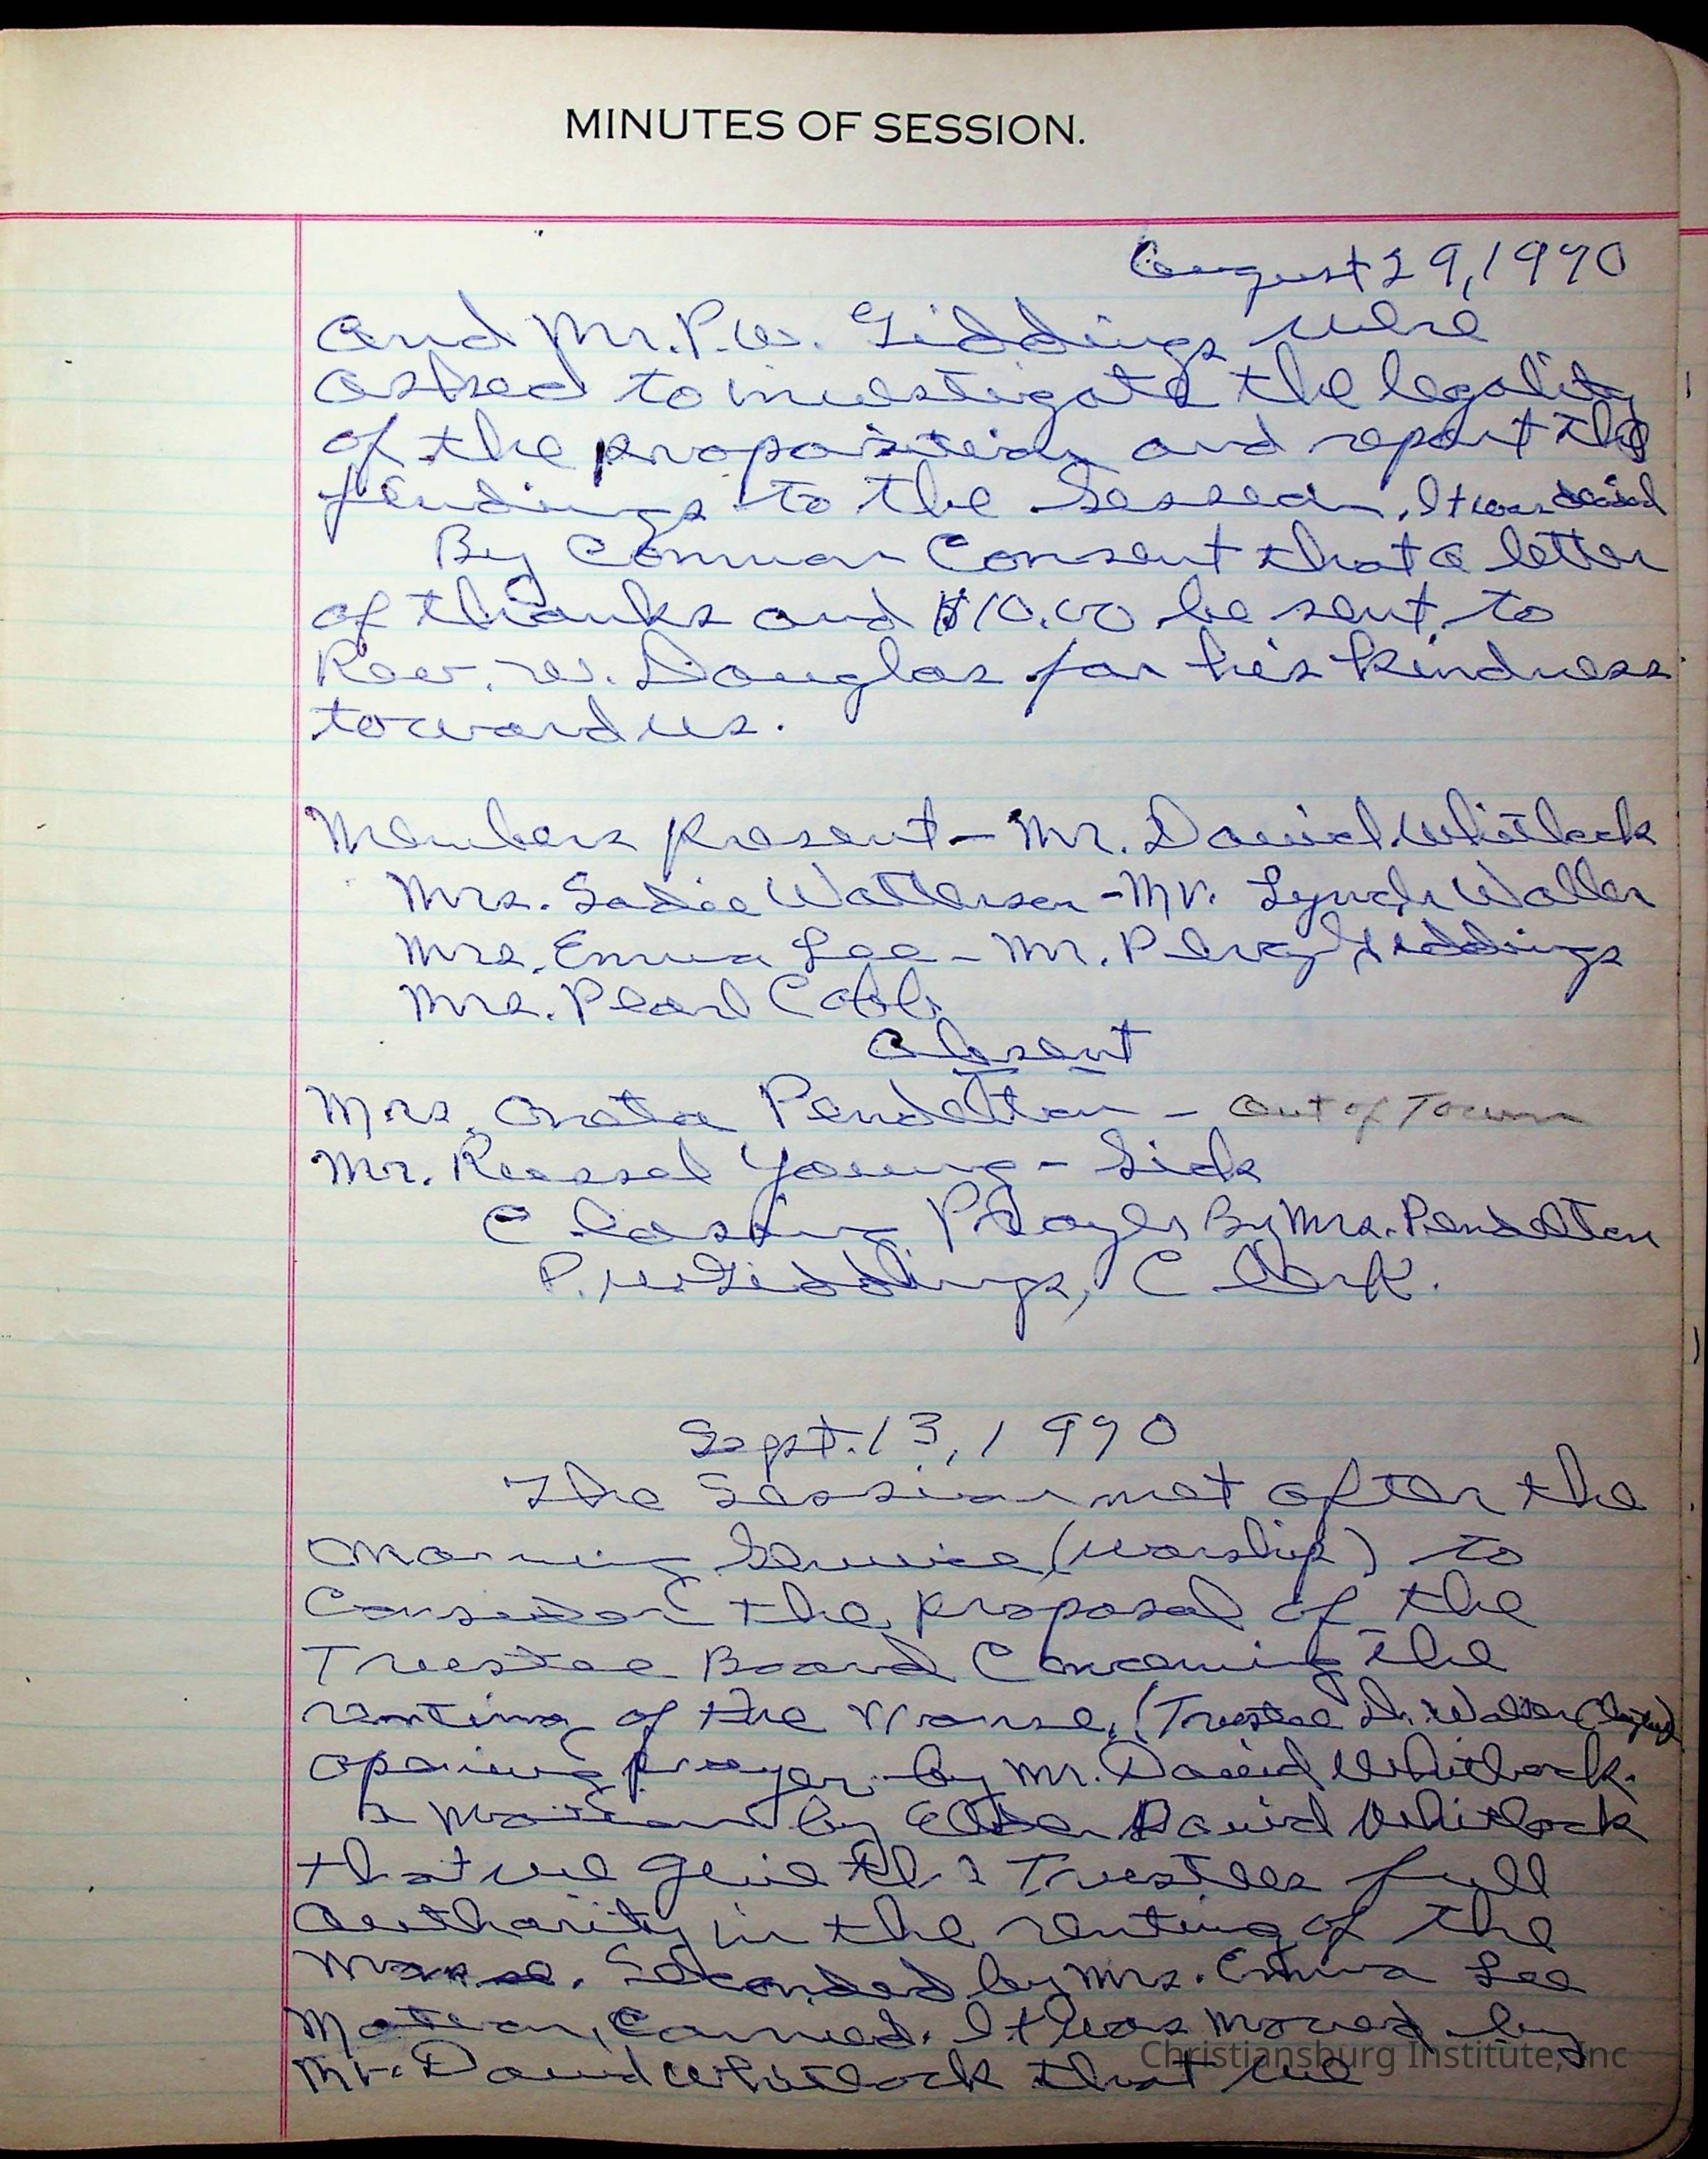 MINUTES OF SESSION.
August 29, 1970
and Mr. P.W. Giddings were
asked to investigate the legality
of the proposition and report the
findings to the Session. It was decided
By Common Consent that a letter
of thanks and $10.00 be sent to
Rev. W. Douglas for his kindness
toward us.
Members present - Mr. David Whitlock
Mrs. Sadie Watterson - Mr. Lynch Waller
Mrs. Emma Lee - Mr. Percy Giddings
Mrs. Pearl Cobb
Absent
Mrs. Oneta Pendelton - Out of Town
Mr. Russel Young - Sick
Closing Prayer By Mrs. Pendelton
P.W. Giddings, Clerk.
Sept. 13, 1970
The Session met after the
morning Service (worship) to
Consider the proposal of the
Trustee Board Concerning the
renting of the Manse. (Trustee L. Waller
opening prayer by Mr. David Whitlock.
a motion by Elder David Whitlock
that we give the Trustees full
authority in the renting of the
Manse. Seconded by Mrs. Emma Lee
Motion Carried. It was moved by
Mr. David Whitlock that we
Christiansburg Institute, Inc